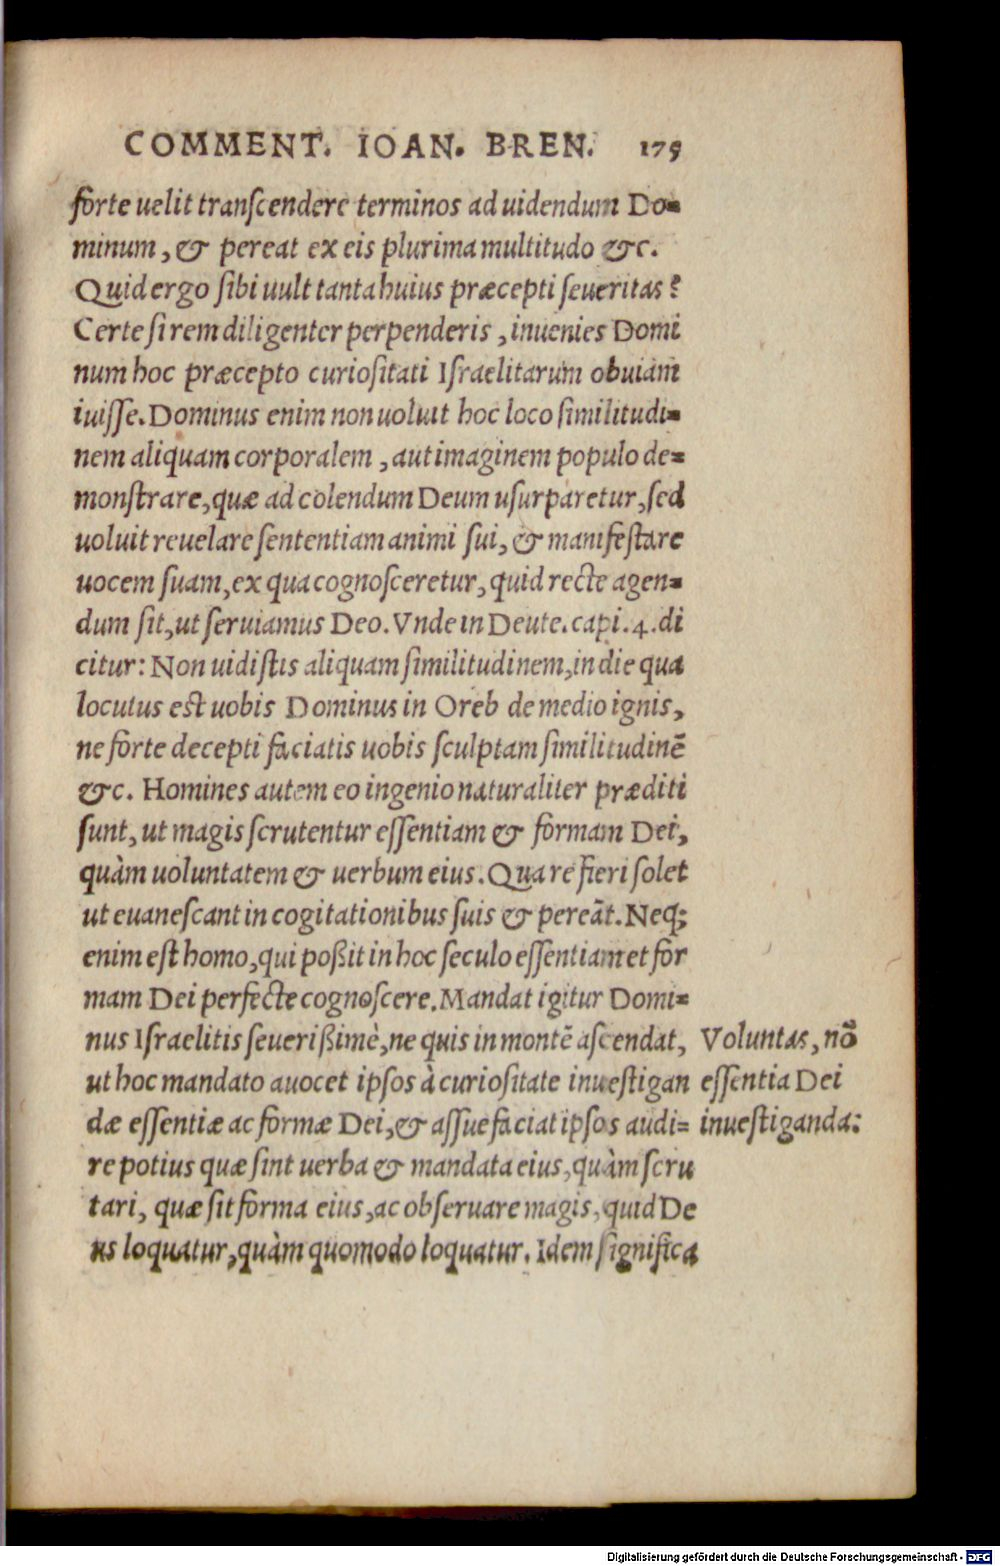 COMMENT. IOAN. BREN. 175
forte uelit transcendere terminos ad uidendum Do-
minum, & pereat ex eis plurima multitudo &c.
Quid ergo sibi uult tanta huius præcepti seueritas?
Certe si rem diligenter perpenderis, inuenies Domi
num hoc præcepto curiositati Israelitarum obuiam
iuisse. Dominus enim non uoluit hoc loco similitudi-
nem aliquam corporalem, aut imaginem populo de-
monstrare, quæ ad colendum Deum usurparetur, sed
uoluit reuelare sententiam animi sui, & manifestare
uocem suam, ex qua cognosceretur, quid recte agen-
dum sit, ut seruiamus Deo. Vnde in Deute. capi. 4. di
citur: Non uidistis aliquam similitudinem, in die qua
locutus est uobis Dominus in Oreb de medio ignis,
ne forte decepti faciatis uobis sculptam similitudinē
&c. Homines autem eo ingenio naturaliter præditi
sunt, ut magis scrutentur essentiam & formam Dei,
quàm uoluntatem & uerbum eius. Quare fieri solet
ut euanescant in cogitationibus suis & pereāt. Neq;
enim est homo, qui poßit in hoc seculo essentiam et for
mam Dei perfecte cognoscere. Mandat igitur Domi-
nus Israelitis seuerißimè, ne quis in montē ascendat,
ut hoc mandato auocet ipsos à curiositate inuestigan
dæ essentiæ ac formæ Dei, & assuefaciat ipsos audi-
re potius quæ sint uerba & mandata eius, quàm scru
tari, quæ sit forma eius, ac obseruare magis, quid De
us loquatur, quàm quomodo loquatur. Idem significa
Voluntas, nō
essentia Dei
inuestiganda:
Digitalisierung gefördert durch die Deutsche Forschungsgemeinschaft - DFG